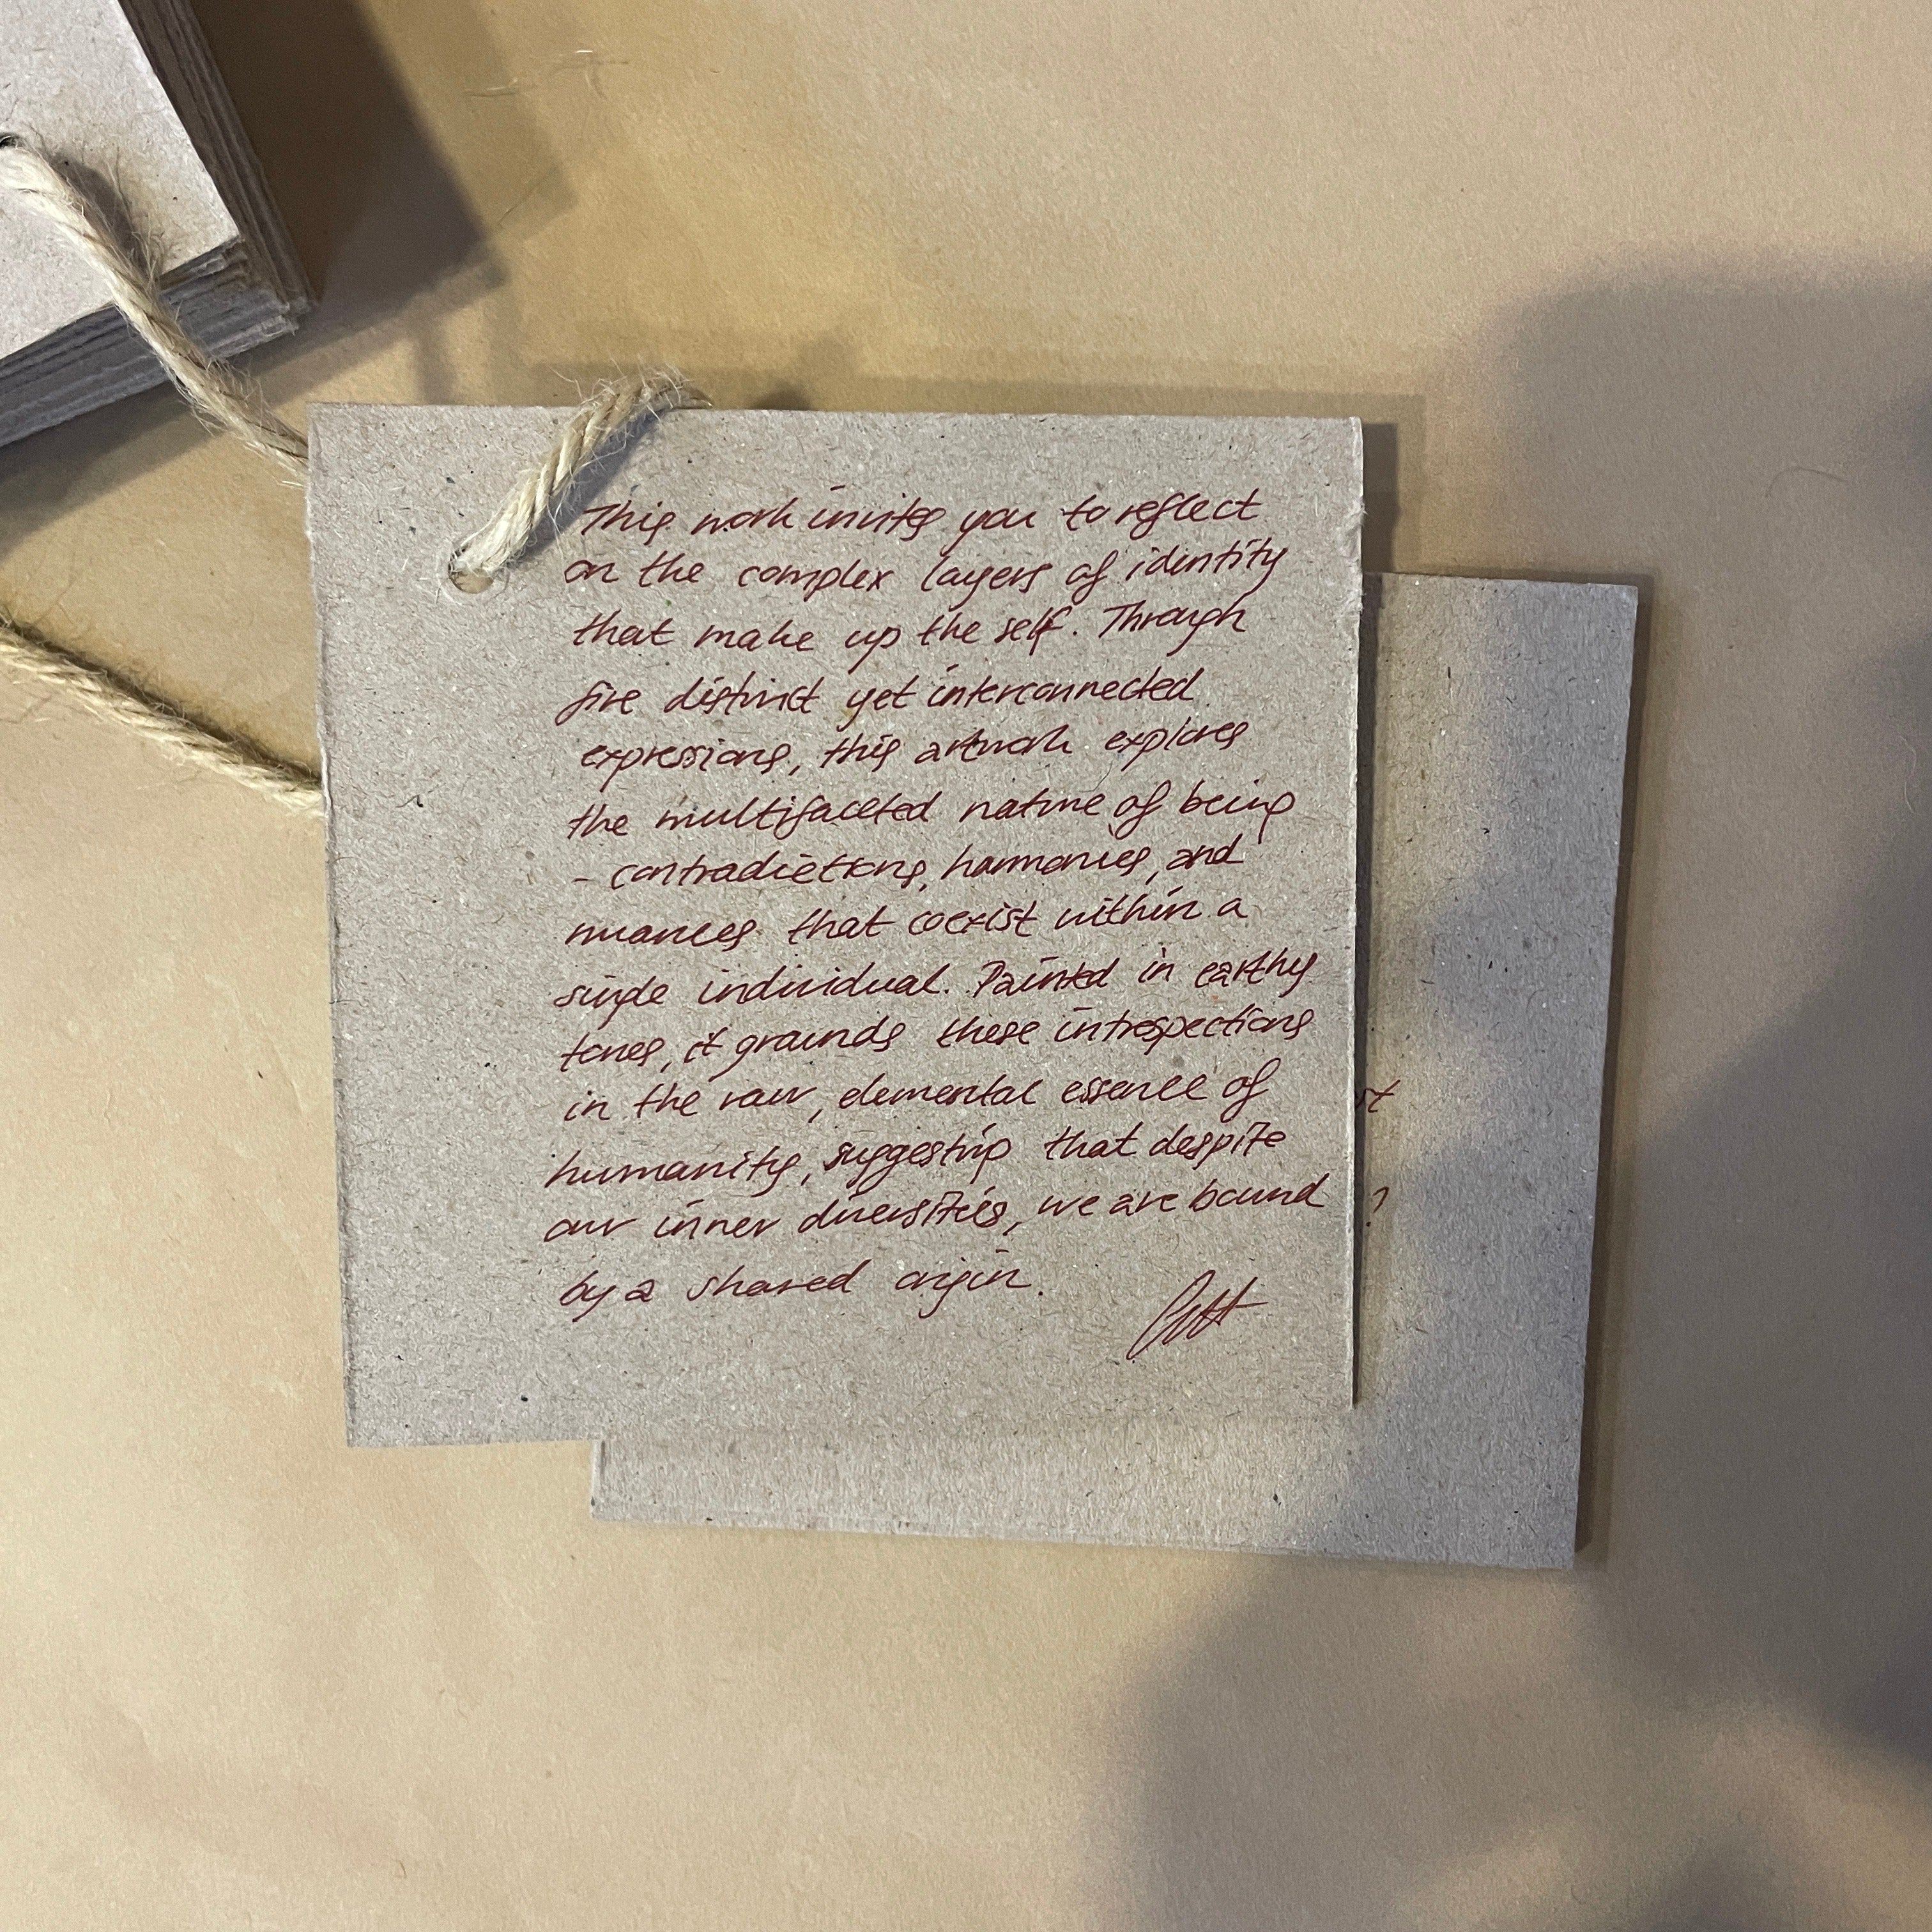 This work invites you to reflect
on the complex layers of identity
that make up the self. Through
five distinct yet interconnected
expressions, this artwork explores
the multifaceted nature of being
- contradictions, harmonies, and
nuances that coexist within a
single individual. Painted in earthy
tones, it grounds these introspections
in the raw, elemental essence of
humanity, suggesting that despite
our inner diversities, we are bound
by a shared origin.
st
?